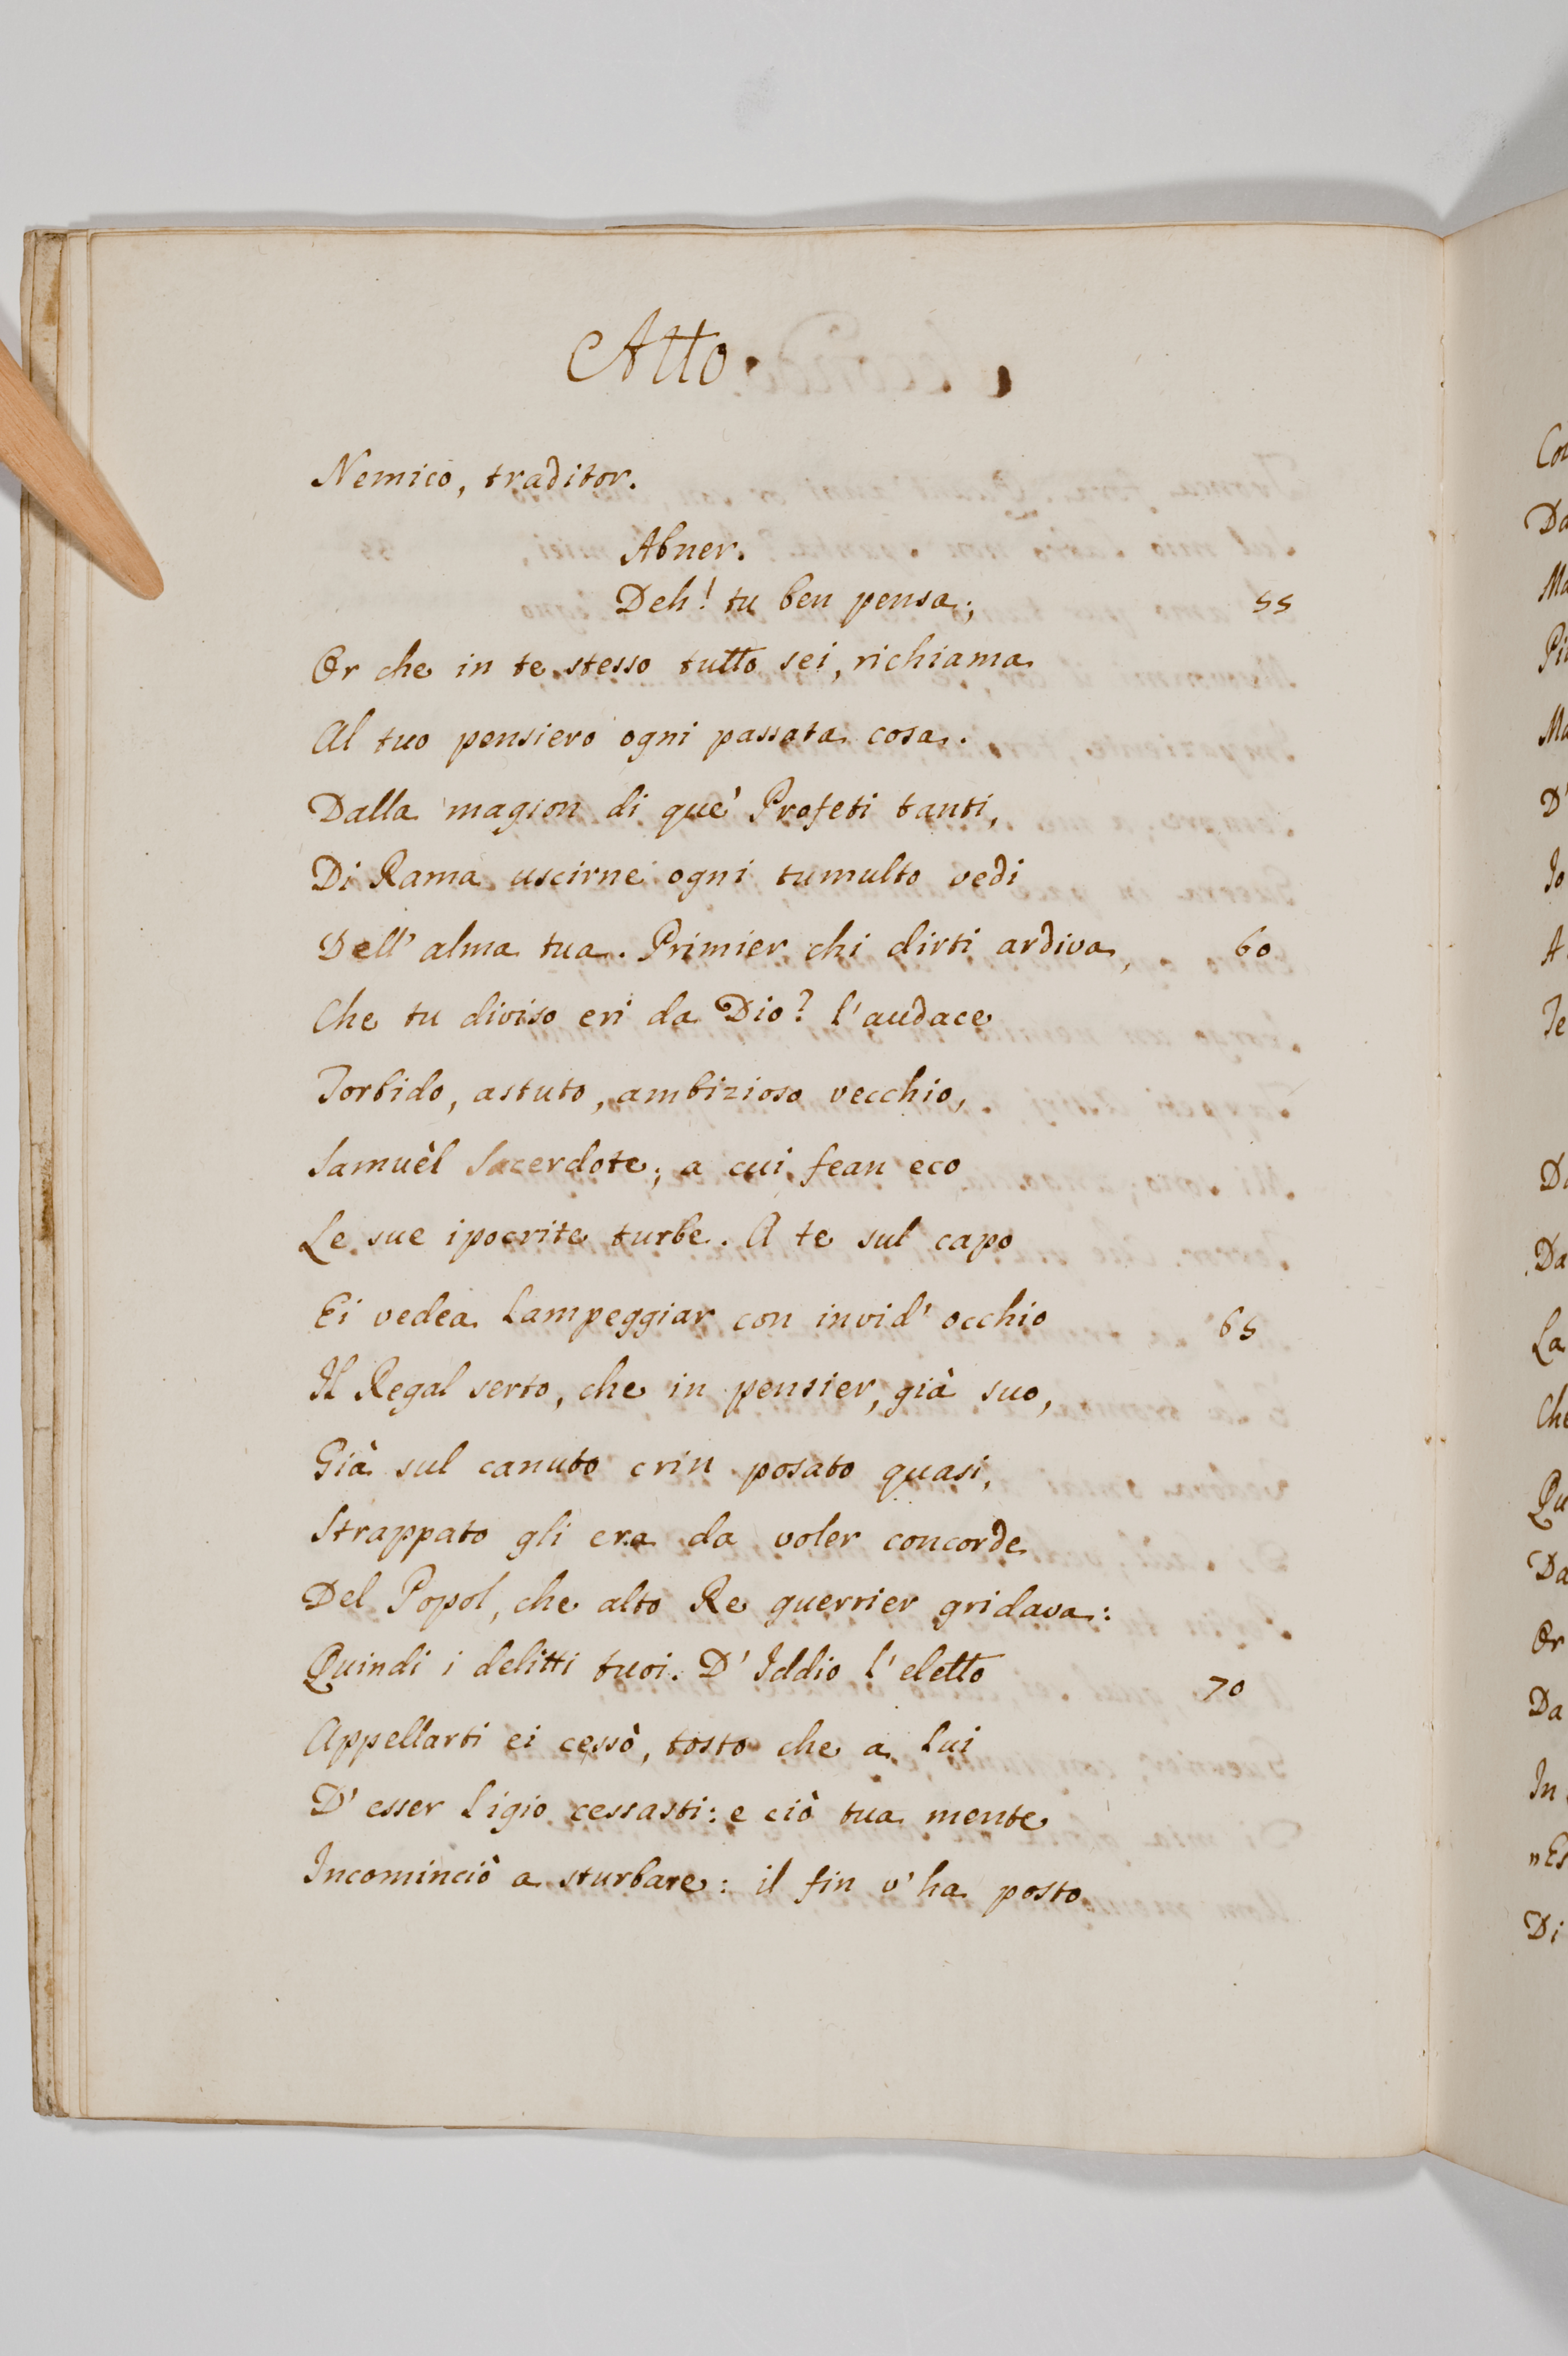 Atto
Nemico, traditor.
Abner.
Deh! tu ben pensa; 55
Or che in te stesso tutto sei, richiama
Al tuo pensiero ogni passata cosa.
Dalla magion di que' Profeti tanti,
Di Rama uscirne ogni tumulto vedi
Dell' alma tua. Primier chi dirti ardiva, 60
Che tu diviso eri da Dio? l'audace
Torbido, astuto, ambizioso vecchio,
Samuèl Sacerdote; a cui fean eco
Le sue ipocrite turbe. A te sul capo
Ei vedea lampeggiar con invid' occhio 65
Il Regal serto, che in pensier, già suo,
Già sul canuto crin posato quasi,
Strappato gli era da voler concorde
Del Popol, che alto Re guerrier gridava:
Quindi i delitti tuoi. D' Iddio l' eletto 70
Appellarti ei cessò, tosto che a lui
D' esser ligio cessasti: e ciò tua mente
Incominciò a sturbare: il fin v' ha posto
Da
Ma
D'
Io
A
Te
Da
La
Che
Qu
Da
Or
Da
In
Di